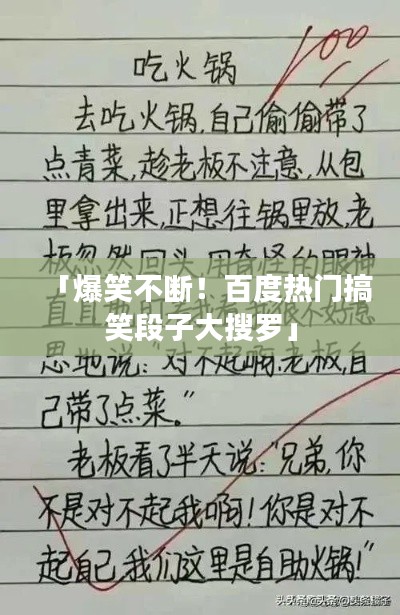 100
吃火锅
去吃火锅,自己偷偷带了
点青菜,趁老板不注意,从包
里拿出来,正想往锅里放,老
板忽然回头,用奇怪的眼神
「爆笑不断!百度热门搞
笑段子大搜罗」
直直
不好意
思地说:“对不起啊老板,自
己带了点菜。”
老板看了半天说:“兄弟,你
不是对不起我啊!你是对不
起自己,我们这里是自助火锅!”